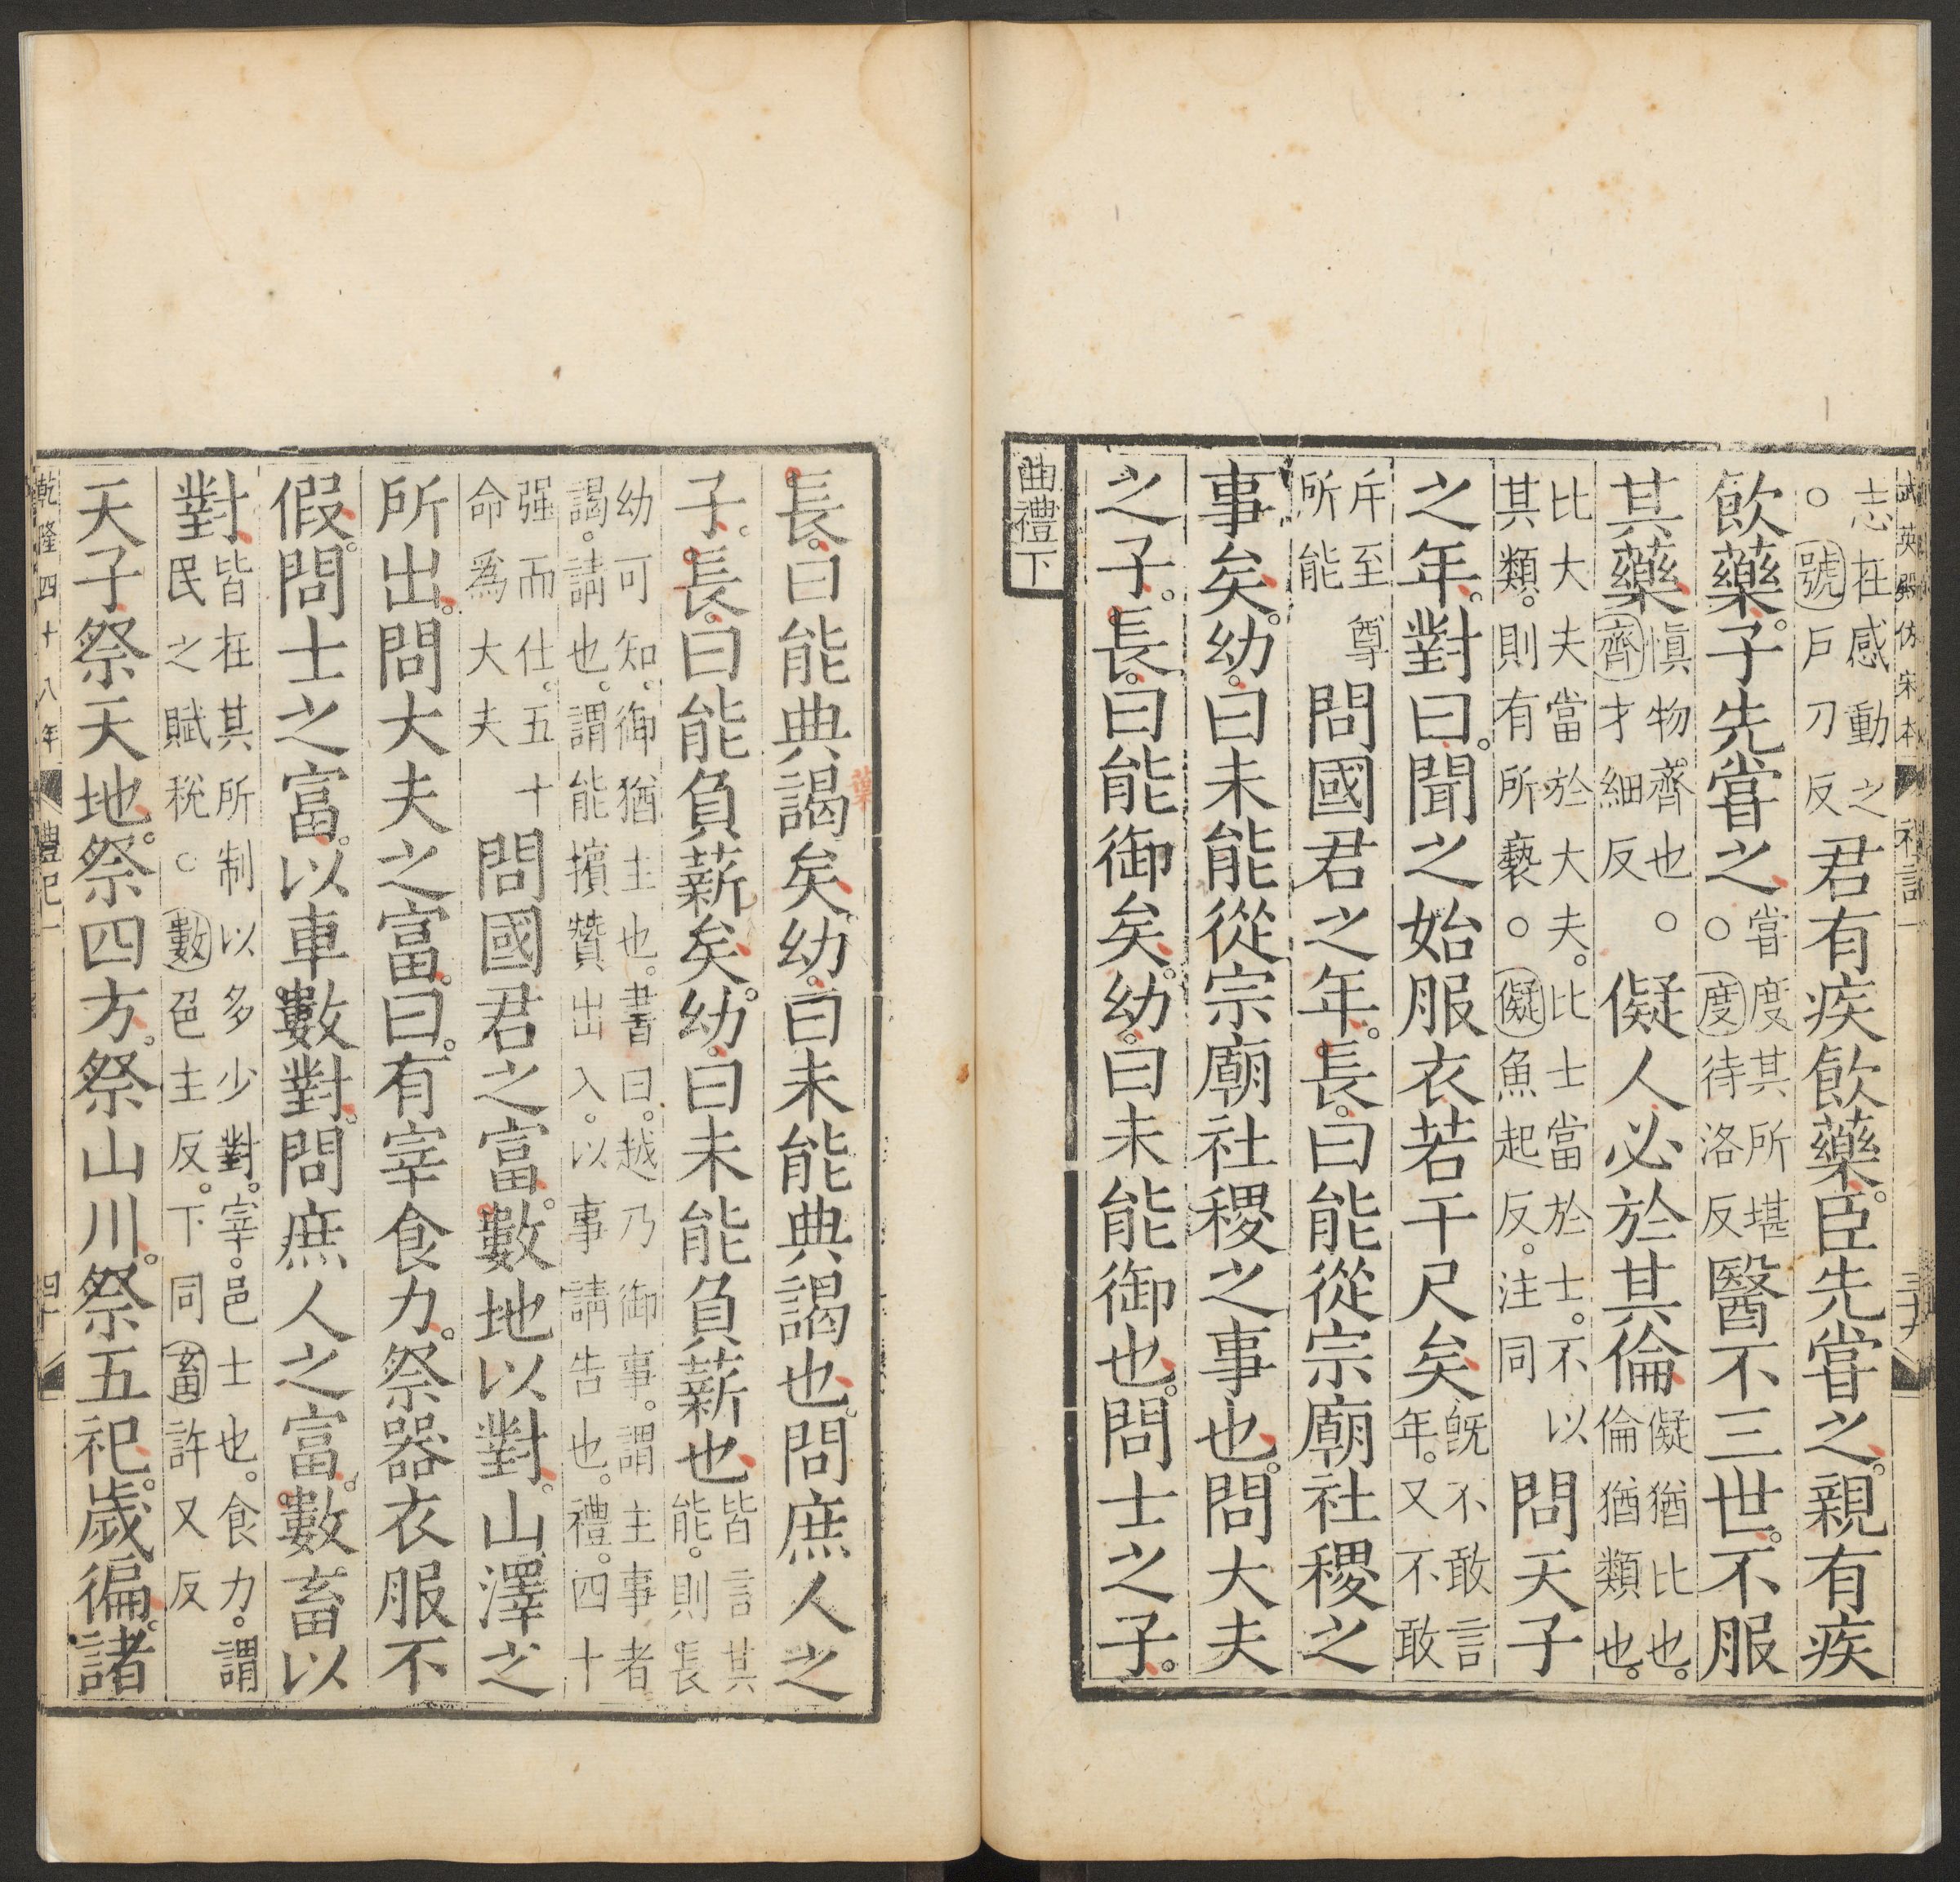 武英殿仿宋本 禮記一 三十九
志在感動之○號戶刀反君有疾飲藥。臣先嘗之。親有疾
飲藥。子先嘗之嘗度其所堪○度待洛反醫不三世。不服
其藥慎物齊也○齊才細反儗人必於其倫儗猶比也。倫猶類也。
比大夫當於大夫。比士當於士。不以其類。則有所褻○儗魚起反。注同問天子
之年。對曰。聞之始服衣若干尺矣既不敢言年。又不敢
斥至尊所能問國君之年。長。曰能從宗廟社稷之
事矣。幼。曰未能從宗廟社稷之事也。問大夫
之子。長。曰能御矣。幼。曰未能御也。問士之子。
曲禮下
長。曰能典謁矣。幼。曰未能典謁也。問庶人之
葉
子。長。曰能負薪矣。幼。曰未能負薪也皆言其能。則長
幼可知。御猶主也。書曰。越乃御事。謂主事者謁。請也。謂能擯贊出入。以事請告也。禮。四十
強而仕。五十命爲大夫問國君之富。數地以對。山澤之
所出。問大夫之富。曰。有宰食力。祭器衣服不
假。問士之富。以車數對。問庶人之富。數畜以
對皆在其所制以多少對。宰。邑士也。食力。謂民之賦稅○數色主反。下同畜許又反
天子祭天地。祭四方。祭山川。祭五祀。歲徧。諸
乾隆四十八年 禮記一 四十